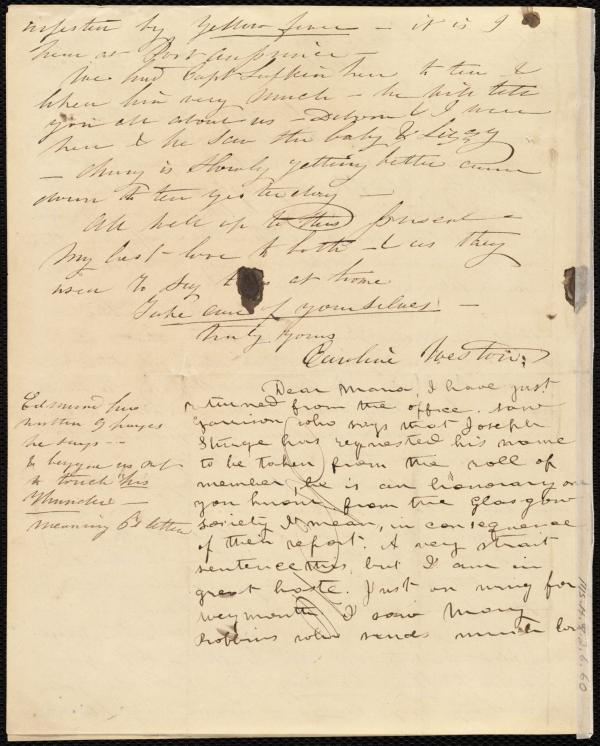 infested by Yellow fever - it is I
hear as Port au prince -
We had Capt Lufkin here to tea I
liked him very much - he will tell
you all about us - Deborah & I were
here & he saw the baby & Lizzy
- is slowly getting better came
down to tea yesterday -
All well up to this present -
My best love to both - & as they
used to say at home
Take care of yourselves -
truly yours
Caroline Weston
Edmund has
written 9 pages
he says -
& beggs us not
to touch his
Thunder -
meaning letter
Dear Maria, I have just
returned from the office. saw
Garrison who says that Joseph
Sturge has requested his name
to be taken from the roll of
member, he is an honorary one
you know, from the Glasgow
Society I mean, in consequence
of their report. A very strait
sentence this, but I am in
great haste. Just on wing for
Weymouth I saw Mary
Robbins who sends much love
MS.A.9.2.6.60